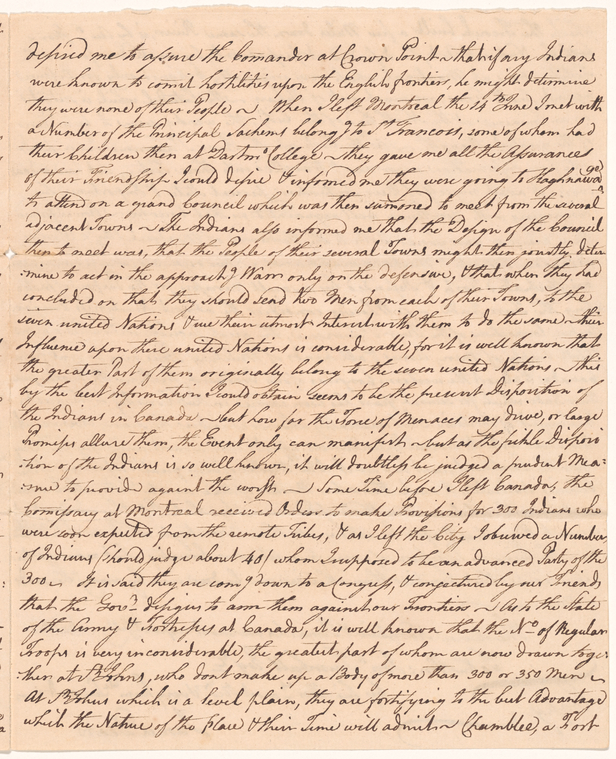 desired me to assure the Comander at Crown Point ~ that if any Indians
were known to comit hostilities upon the English frontiers, he might determine
they were none of their People ~ When I left Montreal the 14th June I met with
a Number of the Principal Sachems belong'g to St Francois, some of whom had
their Children then at Dartmo College ~ they gave me all the Assurances
of their Friendship I could desire & informed me they were going to
to attend on a grand Council which was then sumoned to meet from the several
adjacent Towns ~ The Indians also informed me that the Design of the Council
then to meet was, that the People of their several Towns might then jointly deter=
=mine to act in the approach'g Warr only on the defensive, & that when they had
concluded on that they should send two Men from each of their Towns, to the
seven united Nations & use their utmost Interest with them to do the same ~ their
Influence upon these united Nations is considerable, for it is well known that
the greater Part of them originally belong to the seven united Nations ~ this
by the best Information I could obtain seems to be the present Disposition of
the Indians in Canada ~ but how far the Force of Menaces may drive, or large
Promises allure them, the Event only can manifest ~ but as the fickle Disposi
=tion of the Indians is so well known, it will doubtless be judged a prudent Mea=
=sure to provide against the worst ~ Some Time before I left Canada, the
Comissary at Montreal received Orders to make Provisions for 300 Indians who
were soon expected from the remote Tribes, & as I left the City I observed a Number
of Indians (should judge about 40) whom I supposed to be an advanced Party of the
300 ~ It is said they are com'g down to a Congress, & conjectured by our Friends
that the Govr designs to arm them against our Frontiers ~ As to the State
of the Army & Fortresses at Canada, it is well known that the No of Regular
Troops is very inconsiderable, the greatest part of whom are now drawn toge=
ther at St Johns, who dont make up a Body of more than 300 or 350 Men ~
At St Johns which is a level plain, they are fortifying to the best Advantage
which the Nature of the place & their Time will admit ~ Chamblee, a Fort